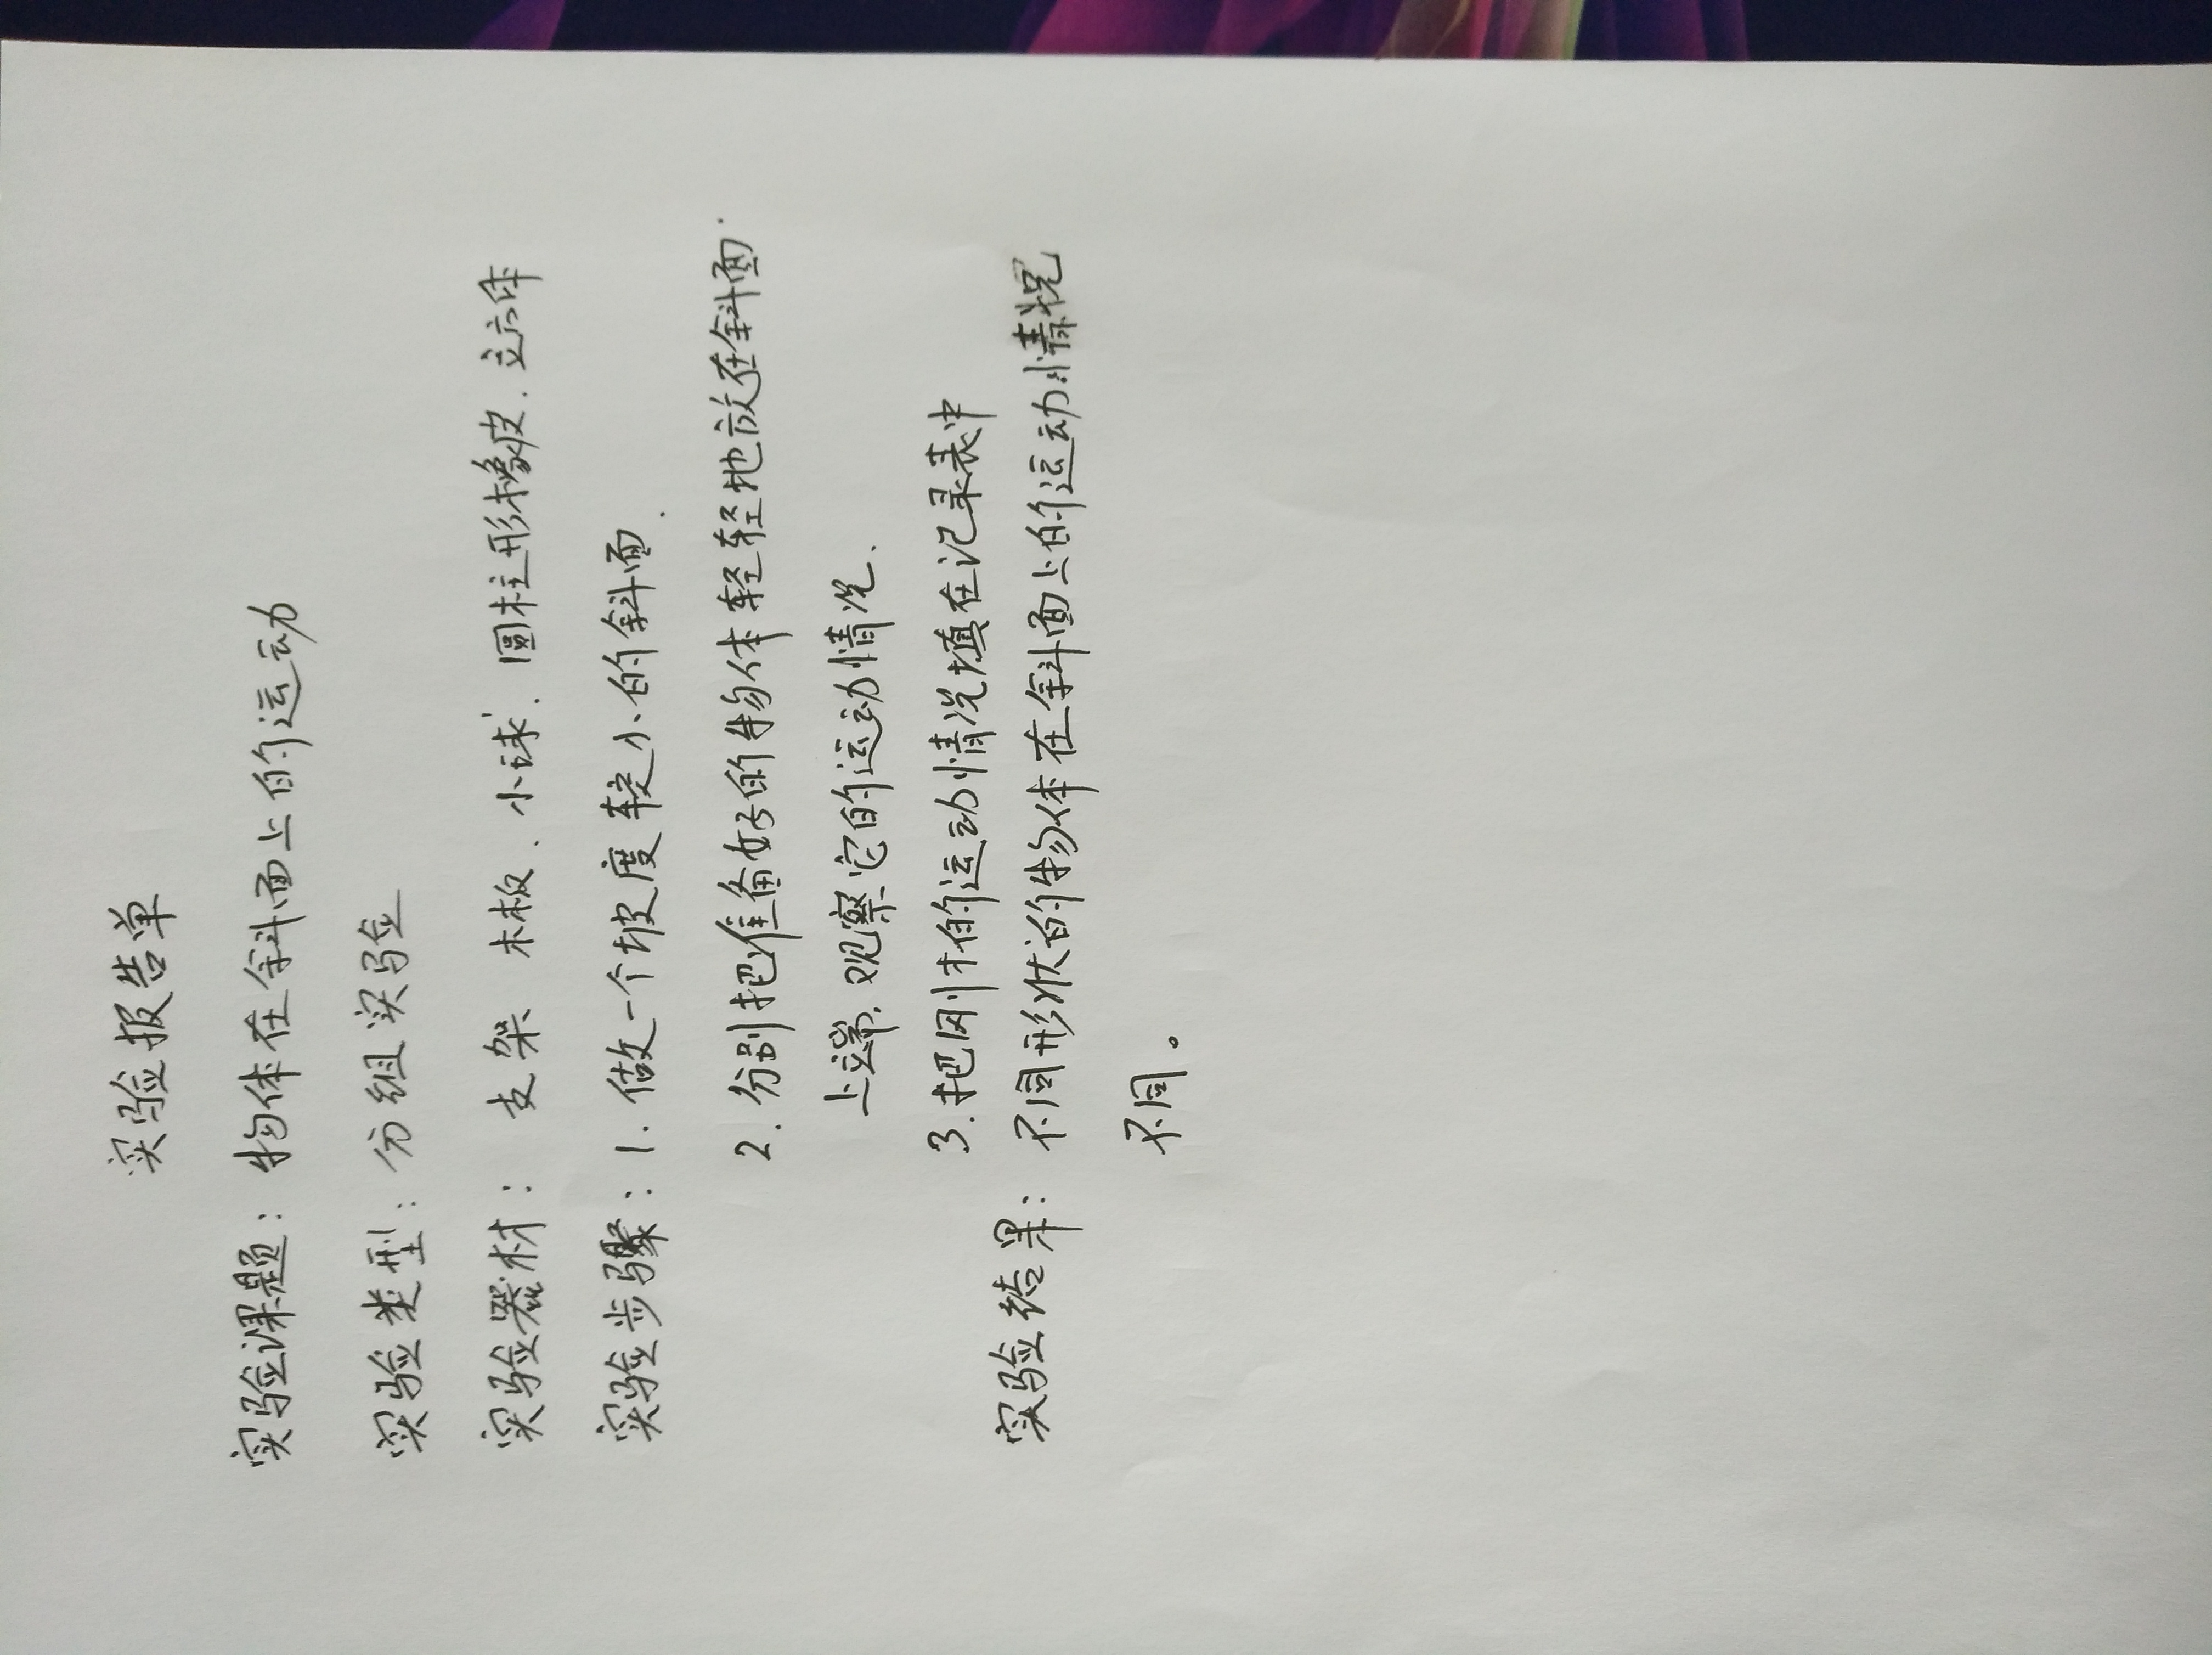 实验报告单
实验课题：物体在斜面上的运动
实验类型：分组实验
实验器材：支架 木板、小球、圆柱形橡皮、立方体
实验步骤：1. 做一个坡度较小的斜面.
2. 分别把准备好的物体轻轻地放在斜面.
上端，观察它的运动情况.
3. 把刚才的运动情况填在记录表中
实验结果：不同形状的物体在斜面上的运动情况
不同。